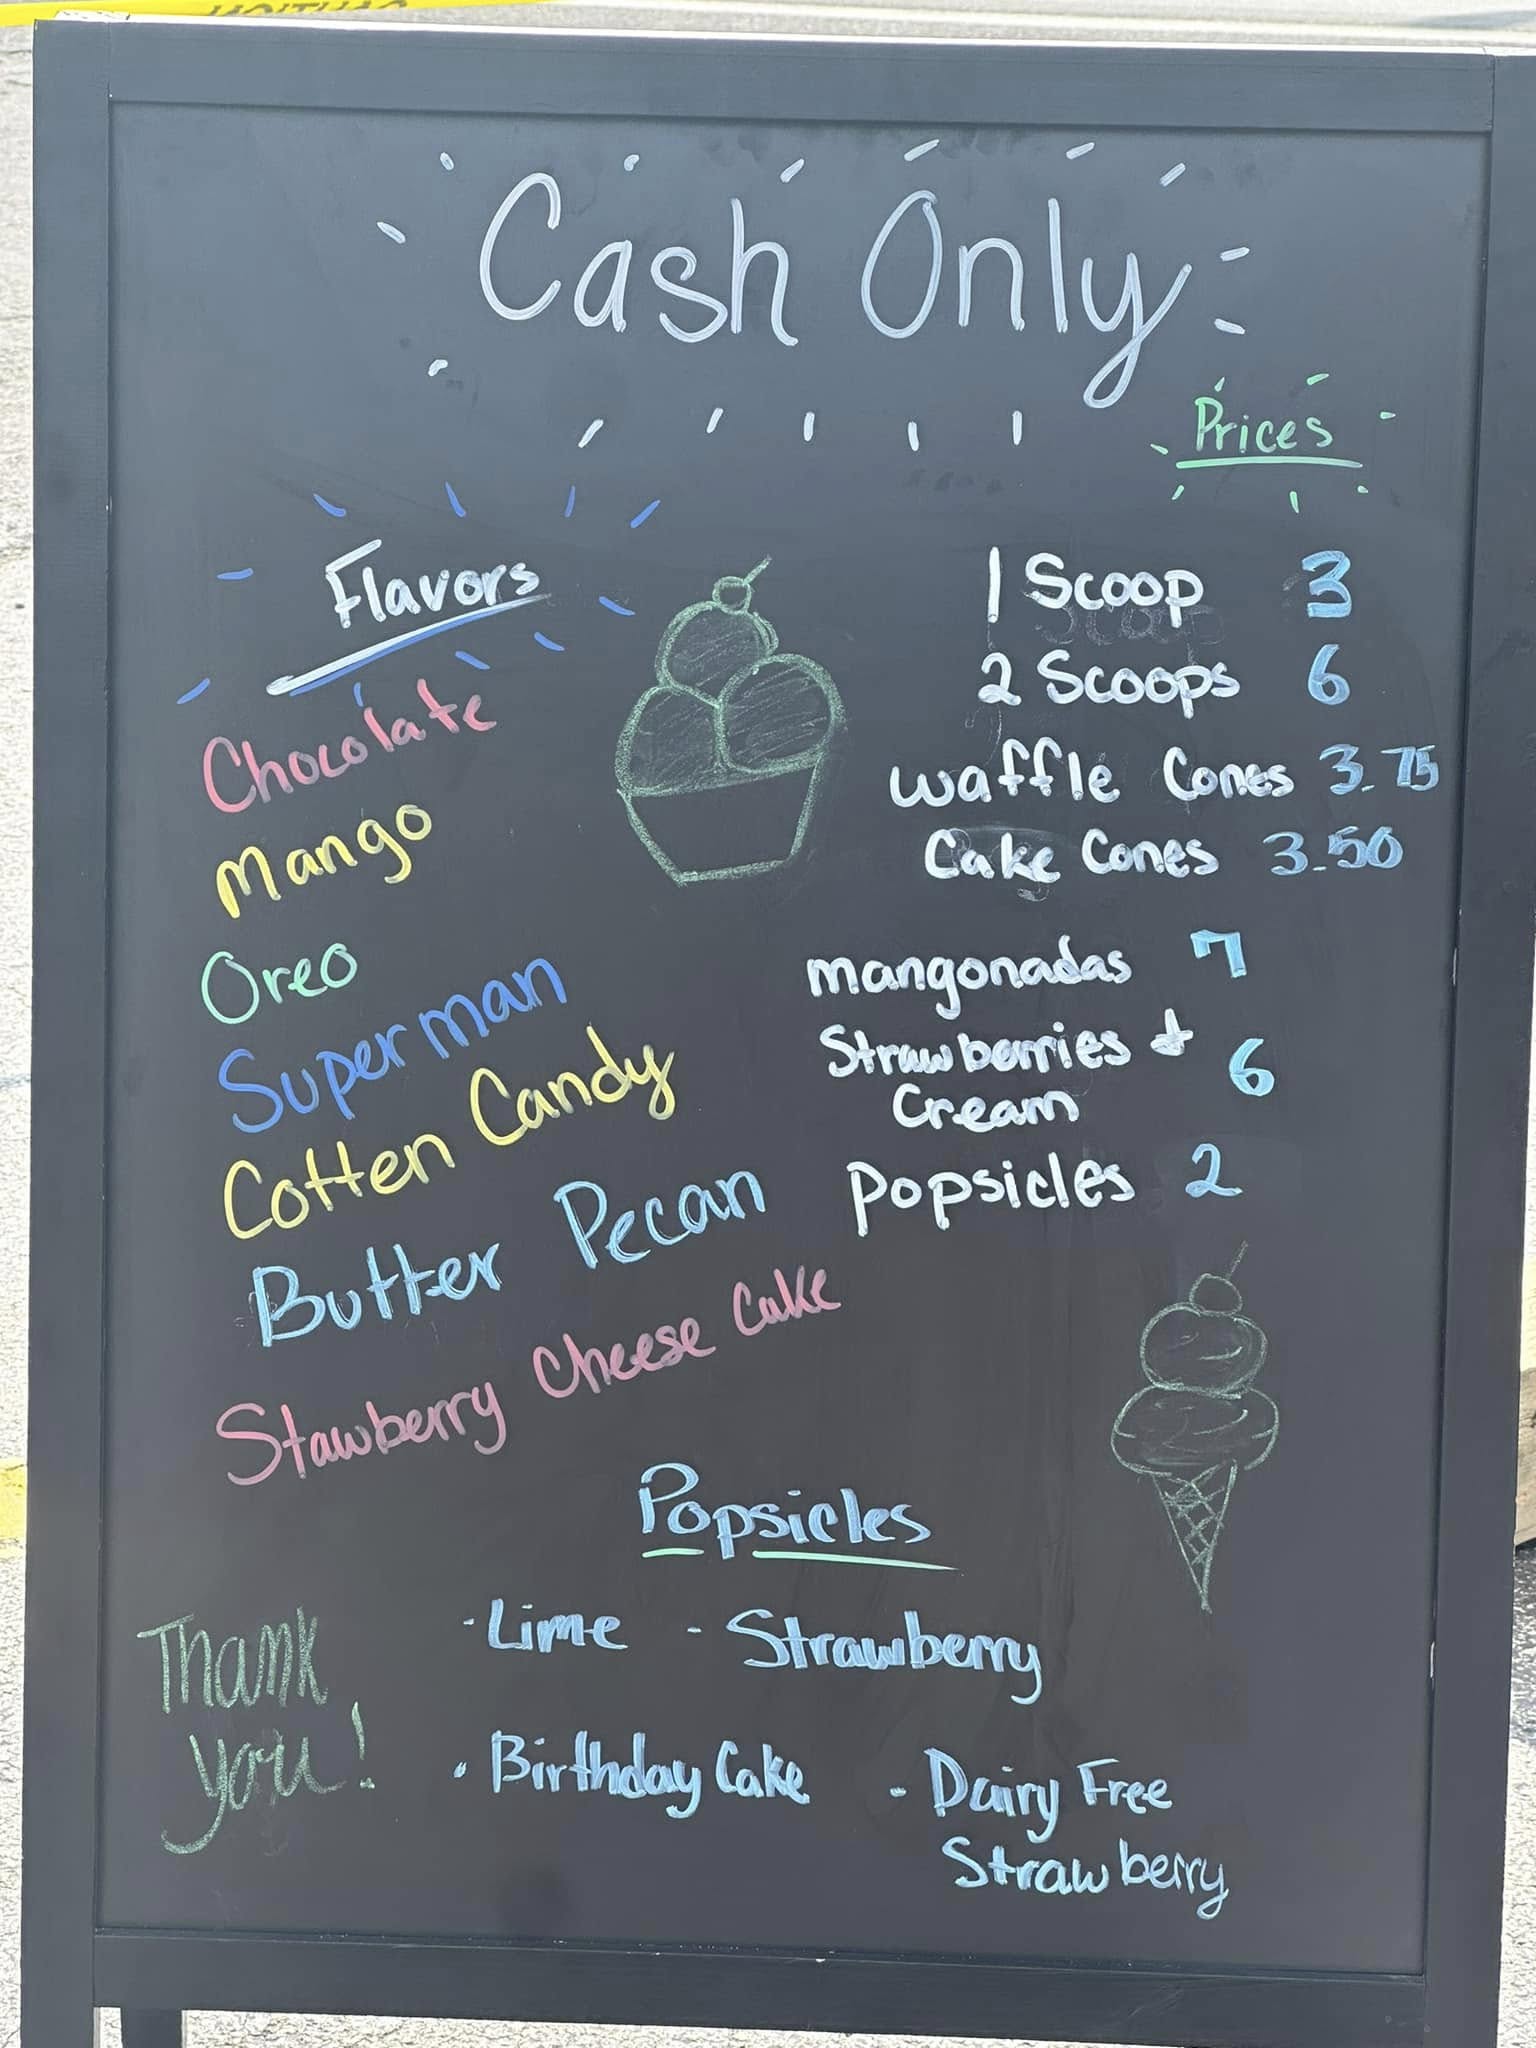 CAUTION
Cash Only
Prices
Flavors
Chocolate
Mango
Oreo
Superman
Cotten Candy
Butter Pecan
Stawberry Cheese Cake
1 Scoop 3
2 Scoops 6
Waffle Cones 3.75
Cake Cones 3.50
mangonadas 7
Strawberries +
Cream 6
Popsicles 2
Popsicles
· Lime - Strawberry
· Birthday Cake - Dairy Free
Strawberry
Thank
you!